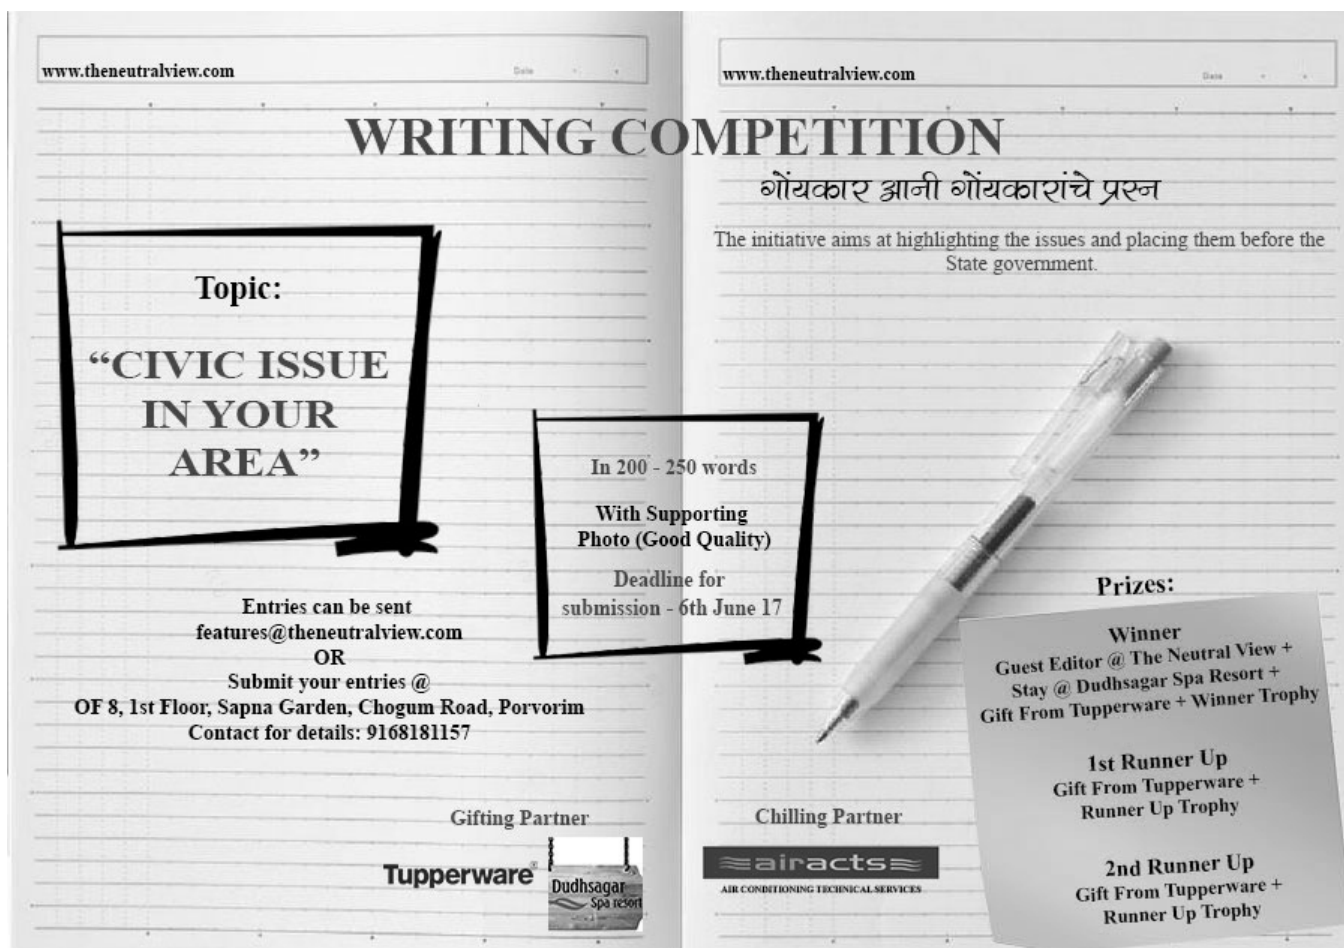 www.theneutralview.com
Date
www.theneutralview.com
Date
WRITING COMPETITION
गोंयकार आनी गोंयकारांचे प्रस्न
The initiative aims at highlighting the issues and placing them before the
State government.
Topic:
“CIVIC ISSUE
IN YOUR
AREA”
In 200 - 250 words
With Supporting
Photo (Good Quality)
Deadline for
submission - 6th June 17
Entries can be sent
features@theneutralview.com
OR
Submit your entries @
OF 8, 1st Floor, Sapna Garden, Chogum Road, Porvorim
Contact for details: 9168181157
Prizes:
Winner
Guest Editor @ The Neutral View +
Stay @ Dudhsagar Spa Resort +
Gift From Tupperware + Winner Trophy
1st Runner Up
Gift From Tupperware +
Runner Up Trophy
2nd Runner Up
Gift From Tupperware +
Runner Up Trophy
Gifting Partner
Tupperware®
Dudhsagar
Spa resort
Chilling Partner
airacts
AIR CONDITIONING TECHNICAL SERVICES